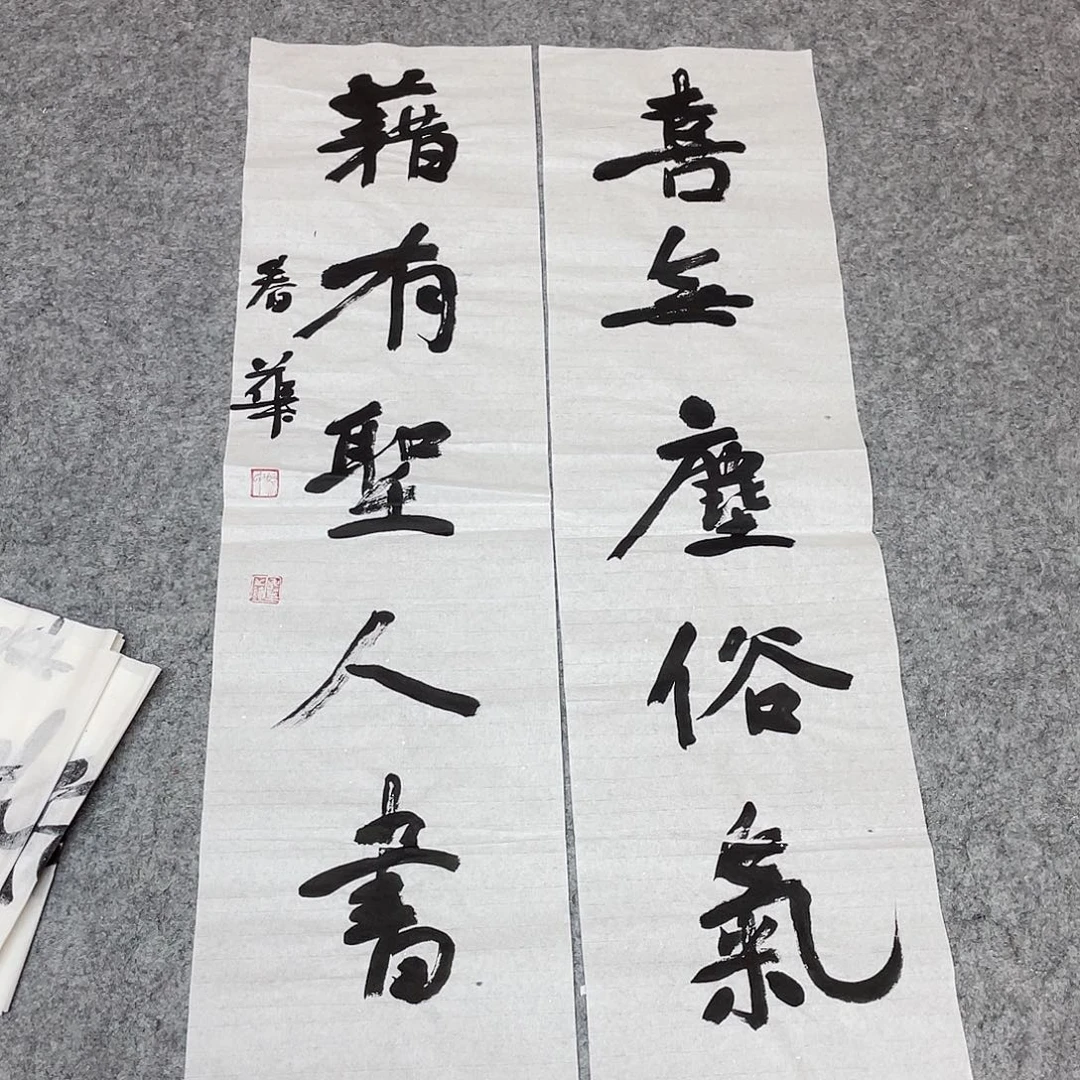 喜無塵俗氣
藉有聖人書
春華